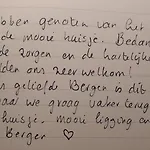 bben genoten van het
de mooie huisje. Bedan
de zorgen en de hartelijkh
lden ons zeer welkom!
n geliefd Bergen is dit
aar we graag vaker terug
huisje. mooi ligging en
Bergen ♡